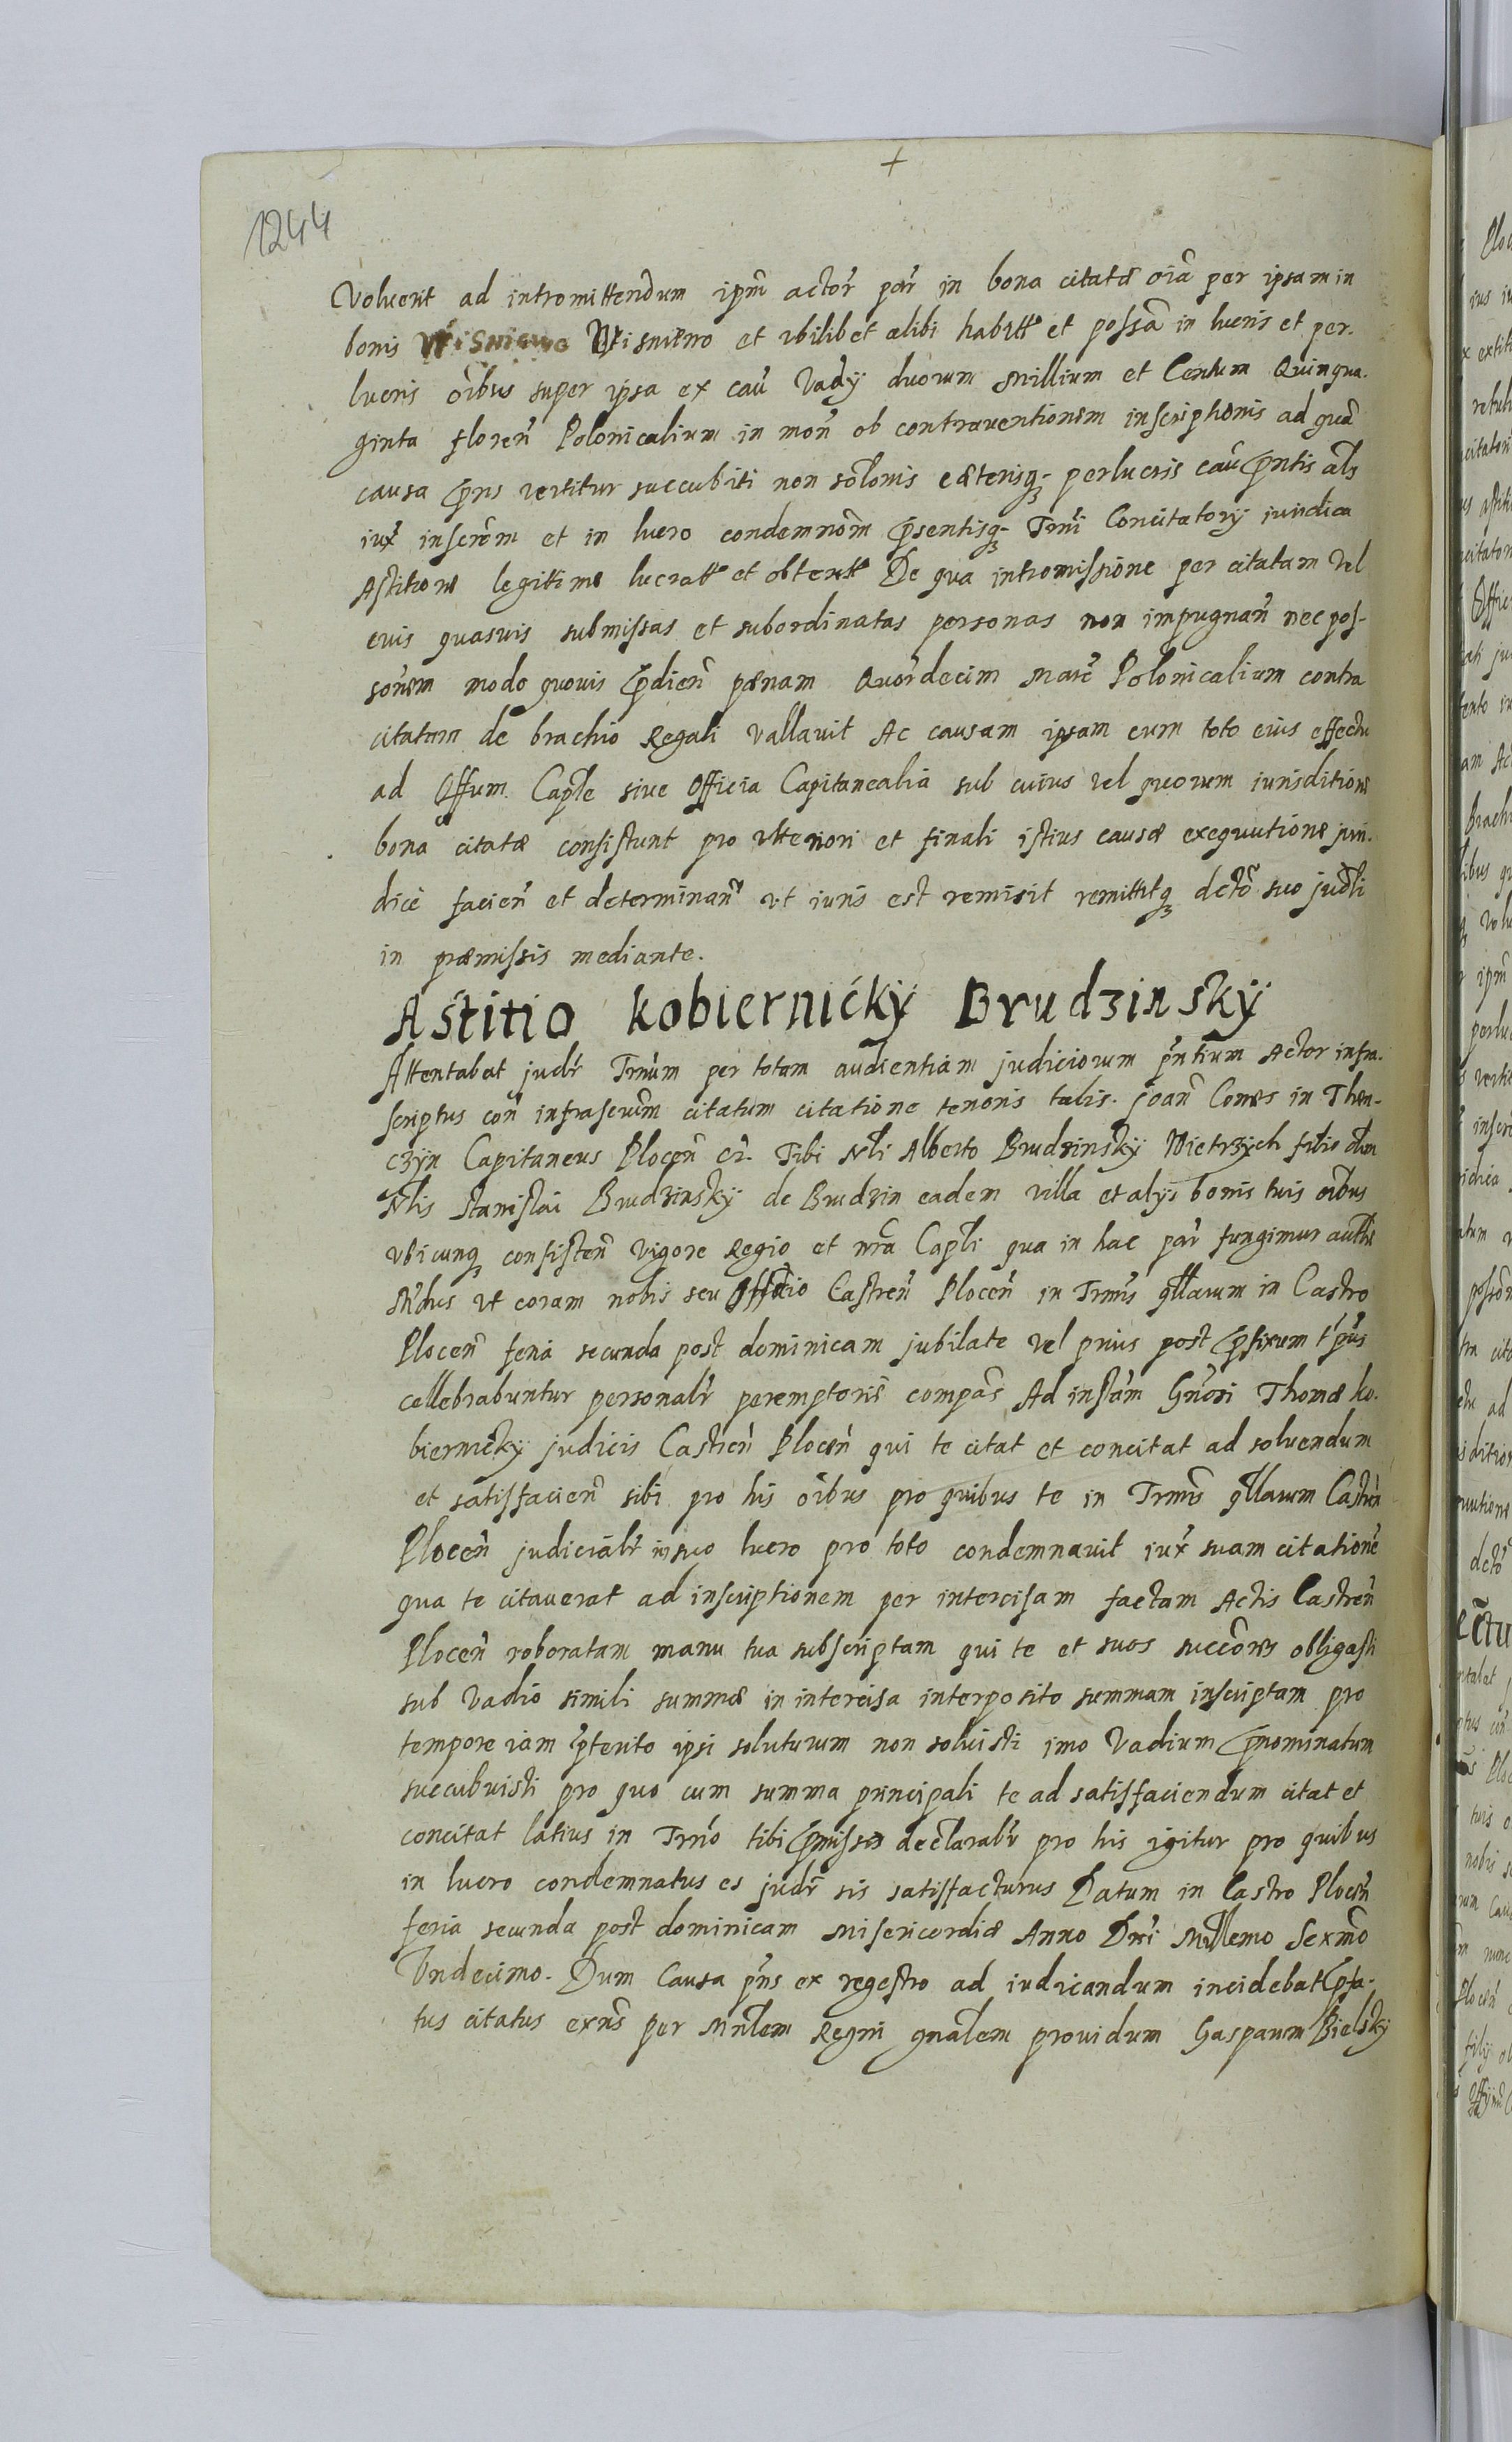 +
1244
Voluerit ad intromittendum ipm̃ actor̃ par̃ in bona citatæ oĩa per ipsam in
bonis Wisniewo Wisniewo et vbilibet alibi habitt̃ et possã in lucris et per-
lucris oĩbus super ipsa ex cau᷈ Vadÿ duorum Millium et Centum Quinqua-
ginta floren̄ Polonicalium in mon̄ ob contrauentionem inscriptionis ad quã
causa p̃ns vertitur succubiti non sol̃onis cæterisq3 perlucris cau᷈ p̃ntis al̃s
iux̃ inscr̃em et in lucro condemnõm p̃sentisq3 Trñi Concitatorÿ iuridica
Astitione legittime lucratt̃ et obtentt̃ De qua intromissione per citatam vel
euis quasuis submissas et subordinatas personas non impugnan̄ nec pos-
sõnem modo quouis p̃dicen̄ pænam Quor̃decim Marc̃ Polonicalium contra
citatam de brachio Regali vallauit Ac causam ipsam cum toto eius effectu
ad Offum. Caplẽ siue Officia Capitanealia sub cuius vel quorum iurisditione
bona citatæ consistunt pro vlteriori et finali istius causæ exequutione juri-
dicè facien̄ et determinan̄ vt iuris est remisit remittitq3 dctõ suo judl̃i
in præmissis mediante.
Astitio Kobiernickÿ Brudzinskÿ
Attentabat judr̃ Trñum per totam audientiam judiciorum p̃ntium Actor infra-
scriptus con̄ infrascrũm citatum citatione tenoris talis. Joan̄ Comes in Then-
czÿn Capitaneus Plocen̄ cr̃. Tibi Nl̃i Alberto Brudzinskÿ Wietrzÿch filio olim
Nl̃is Stanislai Brudzinskÿ de Brudzin eadem villa et alÿs bonis tuis oĩbus
vbicunq3 consisten̄ vigore Regio et nr̃a Capl̃i qua in hac par̃ fungimur autte
Mñdus vt coram nobis seu Officio Castren̄ Plocen̄ in Trm̃is q̃llarum in Castro
Plocen̄ feria secunda post dominicam jubilate vel prius post p̃fixum t̃pus
cellebrabuntur personalr̃ peremptoriẽ compas̃ Ad instãm Gñosi Thomæ Ko-
biernickÿ judicis Castren̄ Plocen̄ qui te citat et concitat ad soluendum
et satisfacien̄ sibi pro his oĩbus pro quibus te in Trm̃is q̃llarum Castren̄
Plocen̄ judicialr̃ in suo lucro pro toto condemnauit iux̃ suam citationẽ
qua te citauerat ad inscriptionem per intercisam factam Actis Castren̄
Plocen̄ roboratam manu tua subscriptam qui te et suos succõres obligasti
sub Vadio simili summæ in intercisa interposito summam inscriptam pro
tempore iam p̃terito ipsi soluturum non soluisti imo Vadium p̃nominatum
succubuisti pro quo cum summa principali te ad satisfaciendum citat et
concitat latius in Trñio tibi p̃missis declaralr̃ pro his igitur pro quibus
in lucro condemnatus es judr̃ sis satisfacturus Datum in Castro Plocen̄
feria secunda post dominicam Misericordiæ Anno Dñi Millemo Sexmõ
Vndecimo. Dum Causa p̃ns ex regestro ad iudicandum incidebat p̃fa-
tus citatus exñs per Mnl̃em Regni gnãlem prouidum Gasparum Bielskÿ